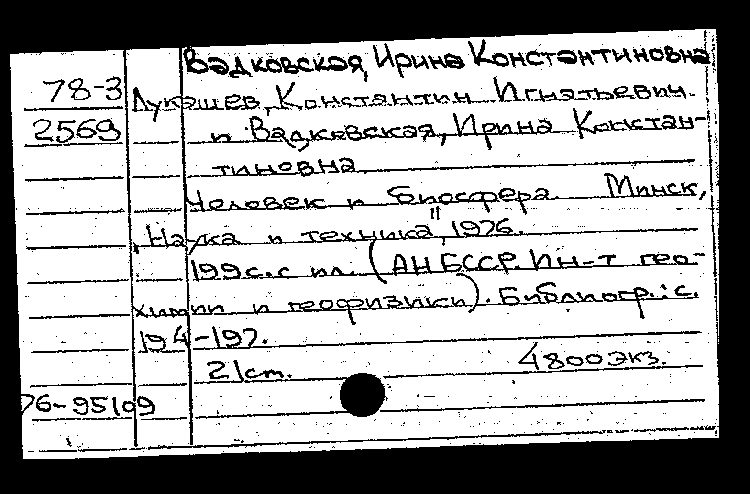 Вадковская, Ирина Константиновна
78-3
Лукашев, Константин Игнатьевич.
2569
и Вадковская, Ирина Констан-
тиновна.
Человек и биосфера. Минск,
"Наука и техника", 1976.
199с. с ил. (АН БССР. Ин-т гео-
химии и геофизики). Библиогр.: с.
194-197.
21 cm. 4800 экз.
76-95109